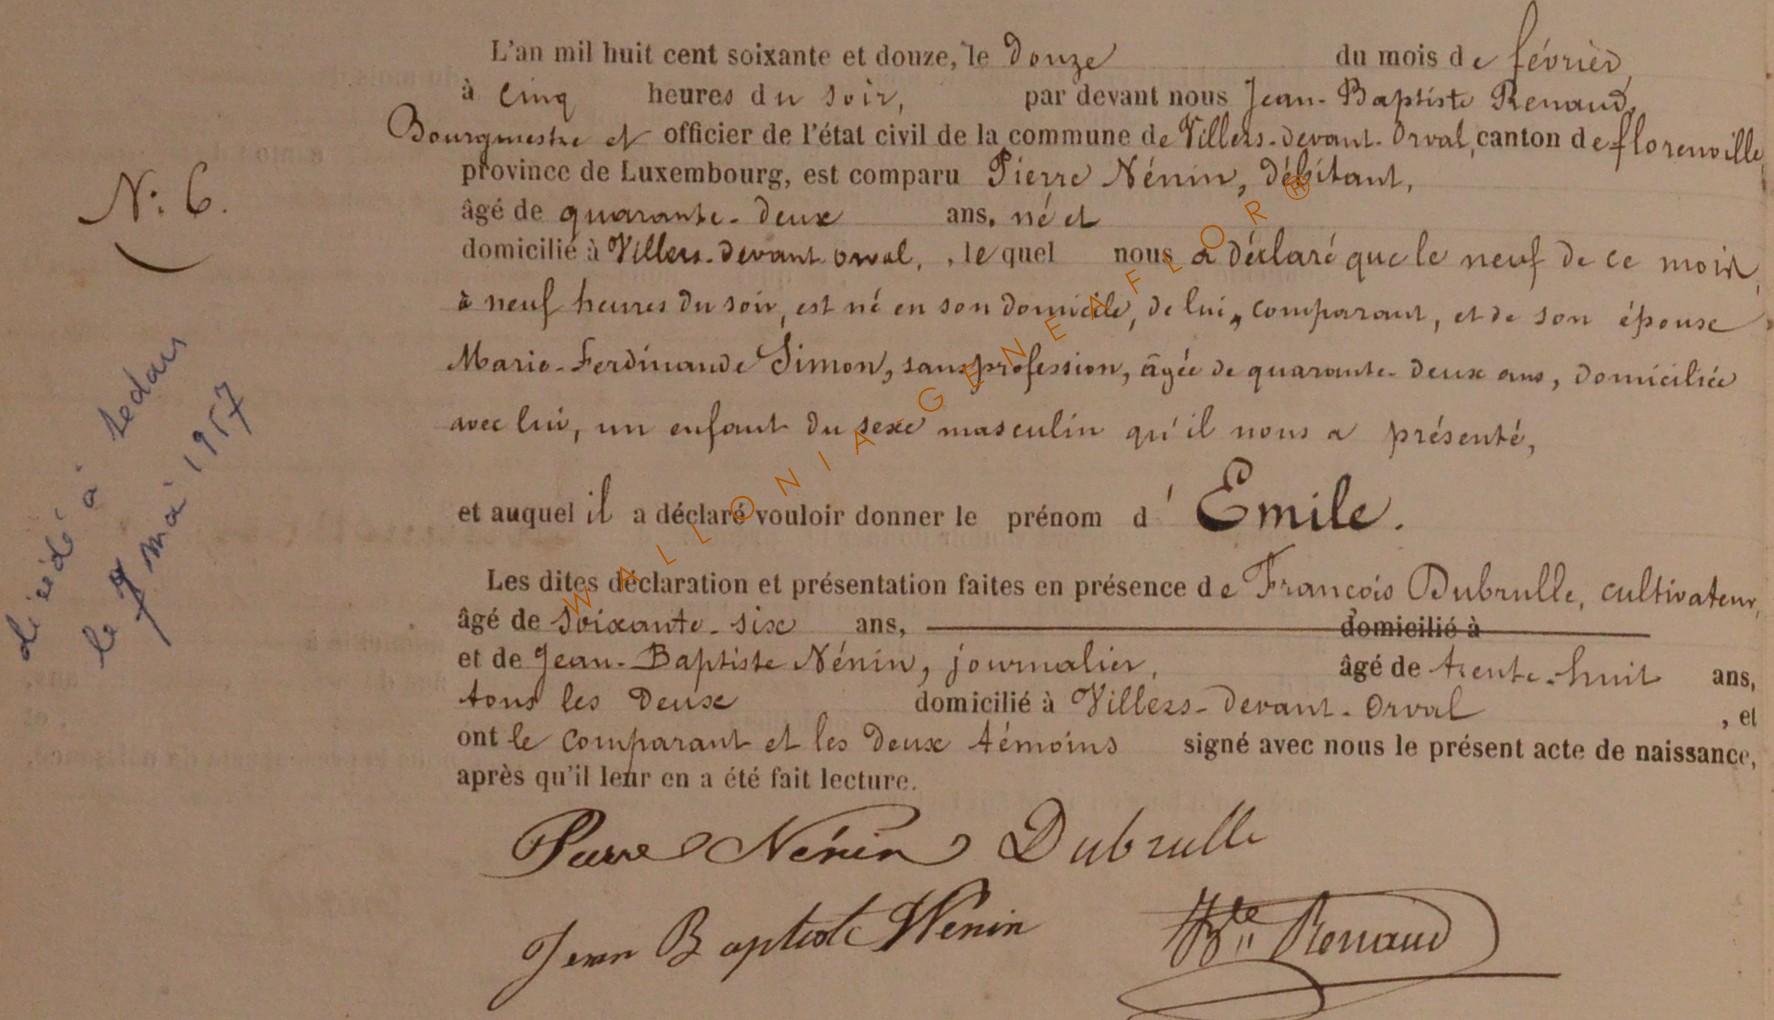 N°: 6.
décédé à Sedan
le 7 mai 1957
L'an mil huit cent soixante et douze, le douze du mois de février,
à cinq heures du soir, par devant nous Jean-Baptiste Renaud,
Bourgmestre et officier de l'état civil de la commune de Villers-devant-Orval, canton de florenville,
province de Luxembourg, est comparu Pierre Nénin, débitant,
âgé de quarante-deux ans, né et
domicilié à Villers-devant orval, , lequel nous a déclaré que le neuf de ce mois,
à neuf heures du soir, est né en son domicile, de lui, comparant, et de son épouse
Marie-Ferdinande Simon, sans profession, âgée de quarante-deux ans, domiciliée
avec lui, un enfant du sexe masculin qu'il nous a présenté,
et auquel il a déclaré vouloir donner le prénom d'Emile.
Les dites déclaration et présentation faites en présence de François Dubrulle, cultivateur,
âgé de soixante-six ans, domicilié à
et de Jean-Baptiste Nénin, journalier, âgé de trente-huit ans,
tous les deux domicilié à Villers-devant-Orval , et
ont le comparant et les deux témoins signé avec nous le présent acte de naissance,
après qu'il leur en a été fait lecture.
Pierre Nénin Dubrulle
Jean Baptist Nenin JBte Renaud
WALLONIA-GENEAFLOR®